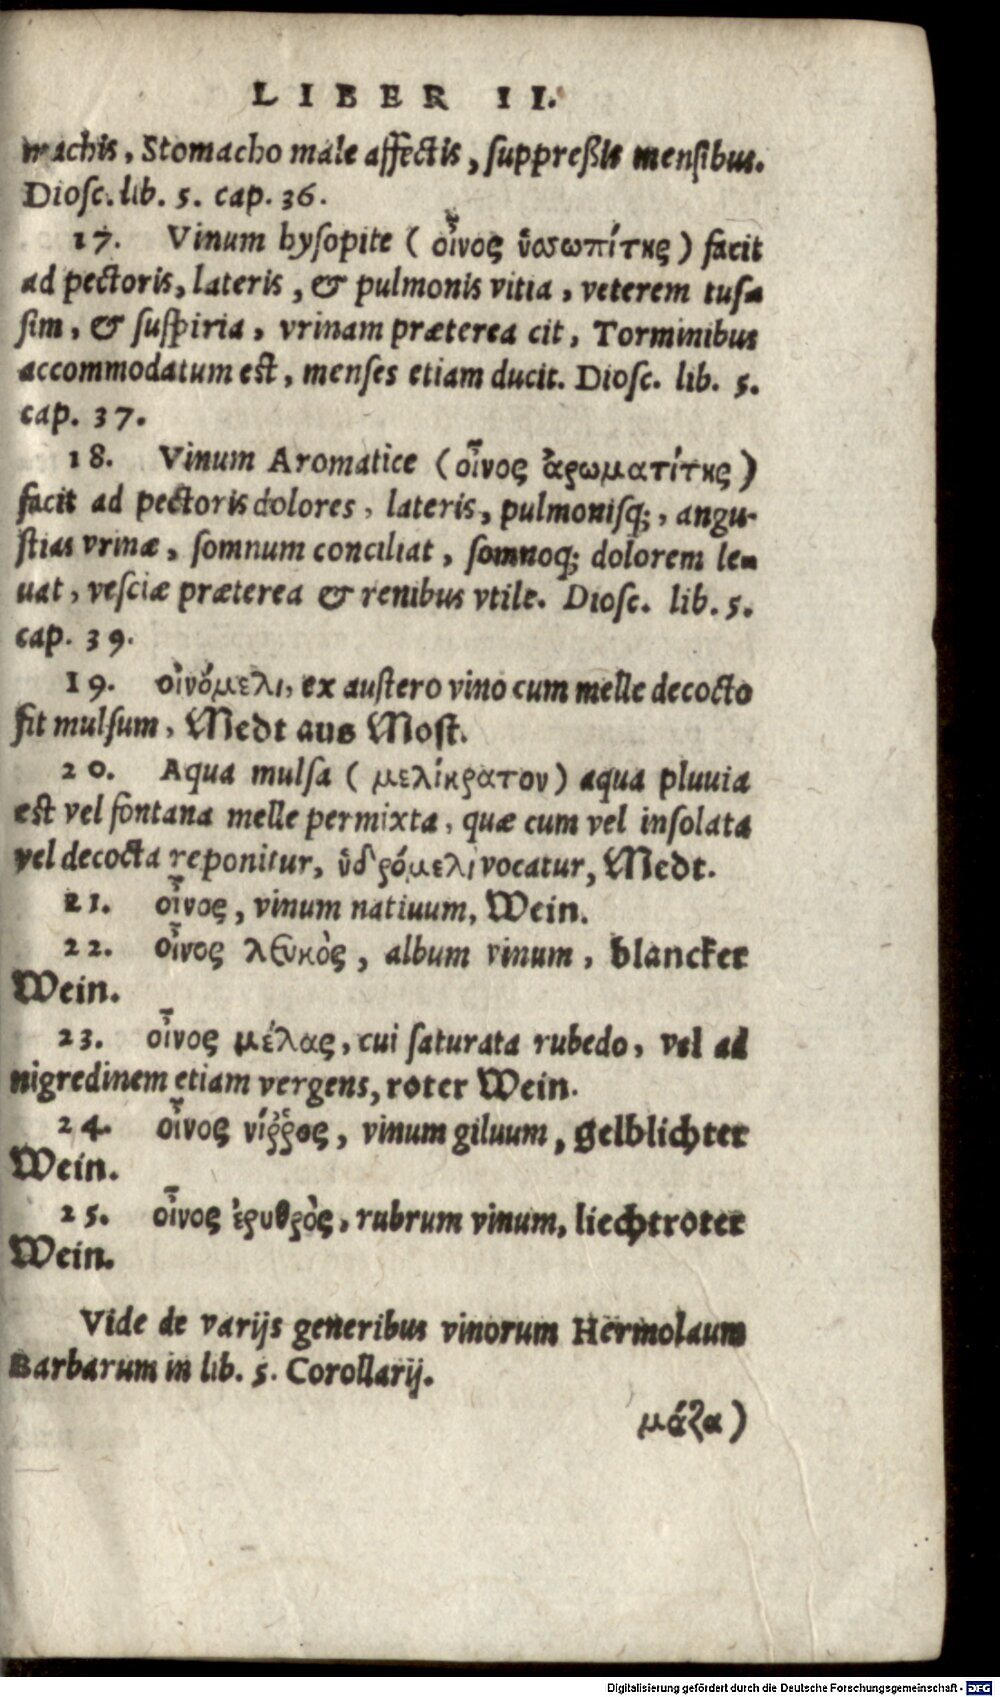 LIBER II.
machis, Stomacho male affectis, suppreßis mensibus.
Diosc. lib. 5. cap. 36.
17. Vinum hysopite (οἶνος ὑσσωπίτης) facit
ad pectoris, lateris, & pulmonis vitia, veterem tus-
sim, & suspiria, vrinam præterea cit, Torminibus
accommodatum est, menses etiam ducit. Diosc. lib. 5.
cap. 37.
18. Vinum Aromatice (οἶνος ἀρωματίτης)
facit ad pectoris dolores, lateris, pulmonisq;, angu-
stias vrinæ, somnum conciliat, somnoq; dolorem le-
uat, vesciæ præterea & renibus vtile. Diosc. lib. 5.
cap. 39.
19. οἰνόμελι, ex austero vino cum melle decocto
fit mulsum, Medt aus Most.
20. Aqua mulsa (μελίκρατον) aqua pluuia
est vel fontana melle permixta, quæ cum vel insolata
vel decocta reponitur, ὑδρόμελι vocatur, Medt.
21. οἶνος, vinum natiuum, Wein.
22. οἶνος λευκὸς, album vinum, blancker
Wein.
23. οἶνος μέλας, cui saturata rubedo, vel ad
nigredinem etiam vergens, roter Wein.
24. οἶνος κίῤῥος, vinum giluum, gelblichter
Wein.
25. οἶνος ἐρυθρὸς, rubrum vinum, liechtroter
Wein.
Vide de varijs generibus vinorum Hermolaum
Barbarum in lib. 5. Corollarij.
μάζα)
Digitalisierung gefördert durch die Deutsche Forschungsgemeinschaft - DFG